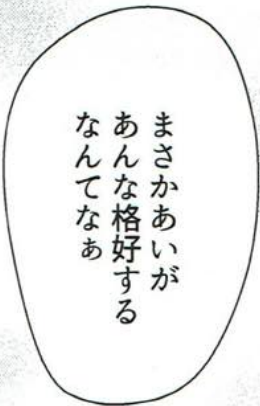 まさかあいが
あんな格好する
なんてなぁ